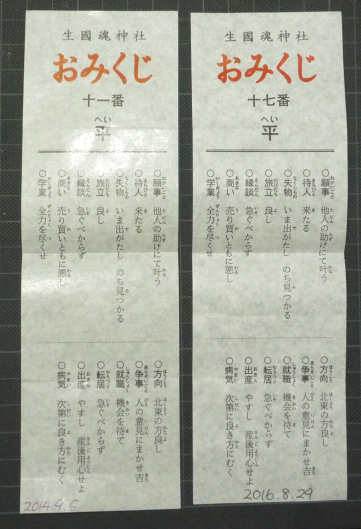 生國魂神社
おみくじ
十一番
へい
平
○願事 他人の助けにて叶う
○待人 来たる
○失物 いま出がたし のち見つかる
○旅立 良し
○縁談 急ぐべからず
○商い 売り買いともに悪し
○学業 全力を尽くせ
○方向 北東の方良し
○争事 人の意見にまかせ吉
○就職 機会を待て
○転居 急ぐべからず
○出産 やすし 産後用心せよ
○病気 次第に良き方にむく
2014.9.5
生國魂神社
おみくじ
十七番
へい
平
○願事 他人の助けにて叶う
○待人 来たる
○失物 いま出がたし のち見つかる
○旅立 良し
○縁談 急ぐべからず
○商い 売り買いともに悪し
○学業 全力を尽くせ
○方向 北東の方良し
○争事 人の意見にまかせ吉
○就職 機会を待て
○転居 急ぐべからず
○出産 やすし 産後用心せよ
○病気 次第に良き方にむく
2016.8.29